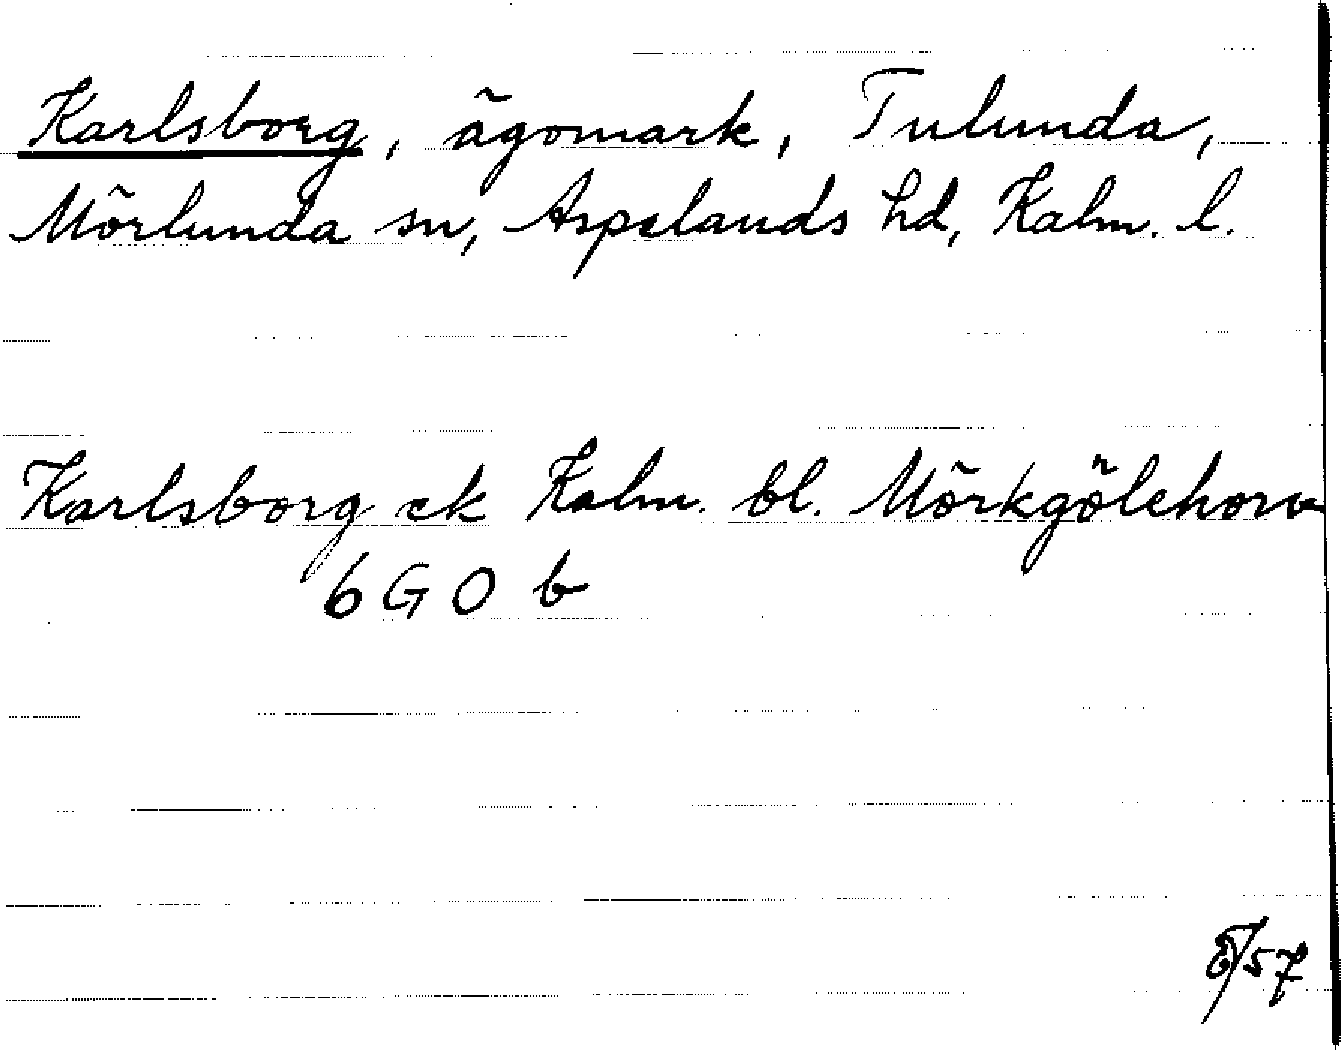 Karlsborg, ägomark, Tulunda,
Mörlunda sn, Aspelands hd, Kalm. l.
Karlsborg ek Kalm. bl. Mörkgölehorv
6 G O b
/57